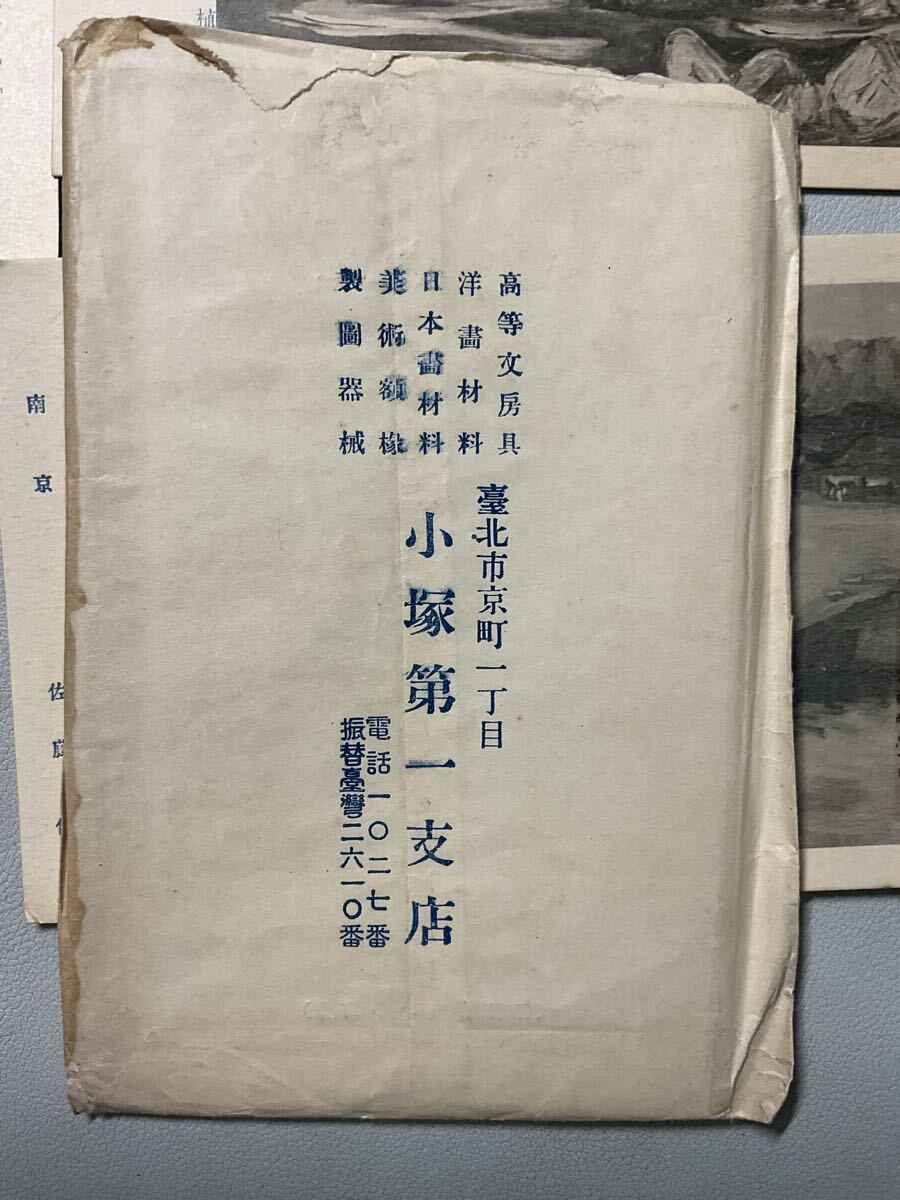 高等文房具
洋畵材料
日本畵材料
美術額椽
製圖器械
臺北市京町一丁目
小塚第一支店
電話一〇二七番
振替臺灣二六一〇番
南京
佐藤